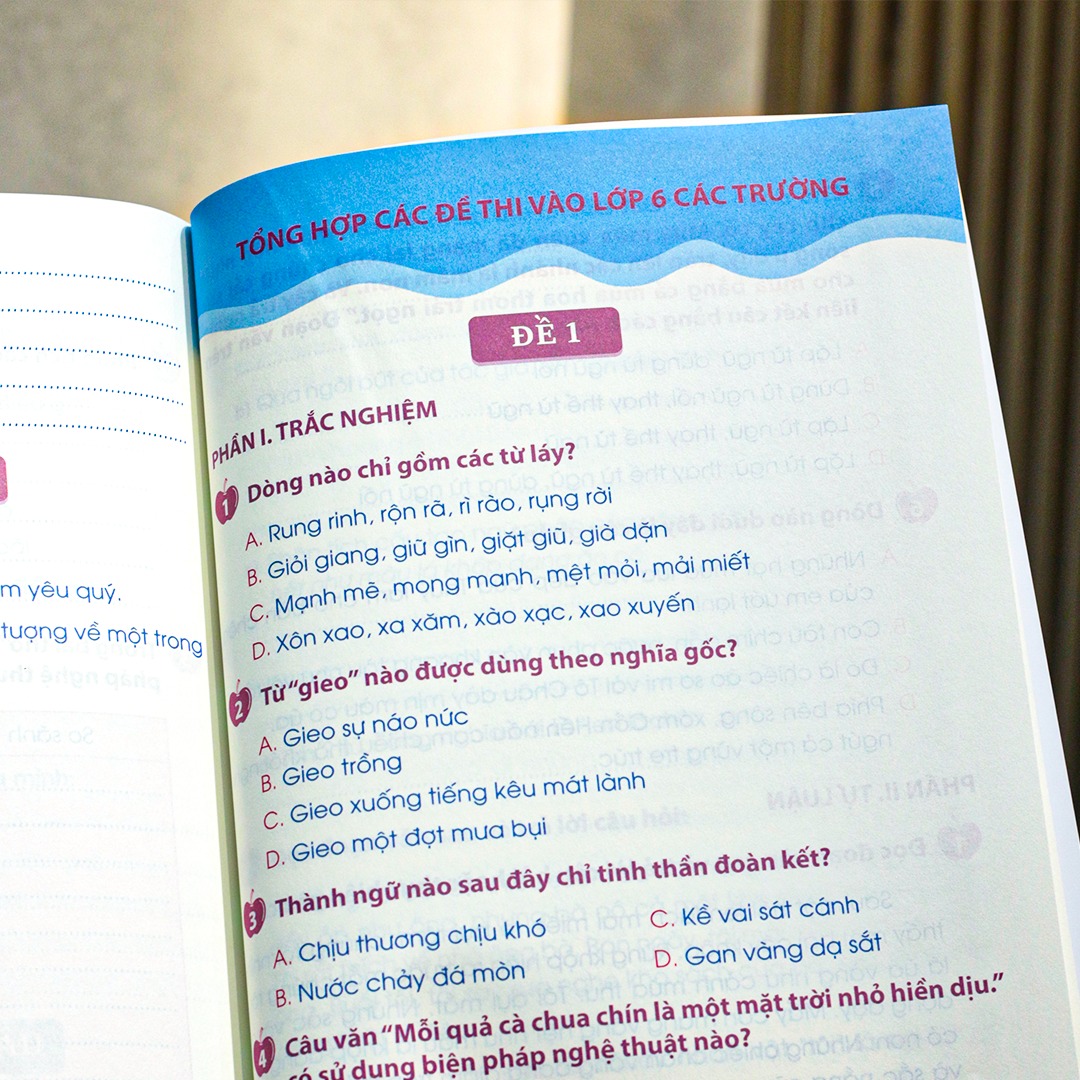 m yêu quý.
tượng về một trong
TỔNG HỢP CÁC ĐỀ THI VÀO LỚP 6 CÁC TRƯỜNG
ĐỀ 1
PHẦN I. TRẮC NGHIỆM
1 Dòng nào chỉ gồm các từ láy?
A. Rung rinh, rộn rã, rì rào, rụng rời
B. Giỏi giang, giữ gìn, giặt giũ, già dặn
C. Mạnh mẽ, mong manh, mệt mỏi, mải miết
D. Xôn xao, xa xăm, xào xạc, xao xuyến
2 Từ “gieo” nào được dùng theo nghĩa gốc?
A. Gieo sự náo nức
B. Gieo trồng
C. Gieo xuống tiếng kêu mát lành
D. Gieo một đợt mưa bụi
3 Thành ngữ nào sau đây chỉ tinh thần đoàn kết?
A. Chịu thương chịu khó
B. Nước chảy đá mòn
C. Kề vai sát cánh
D. Gan vàng dạ sắt
4 Câu văn “Mỗi quả cà chua chín là một mặt trời nhỏ hiền dịu.”
có sử dụng biện pháp nghệ thuật nào?